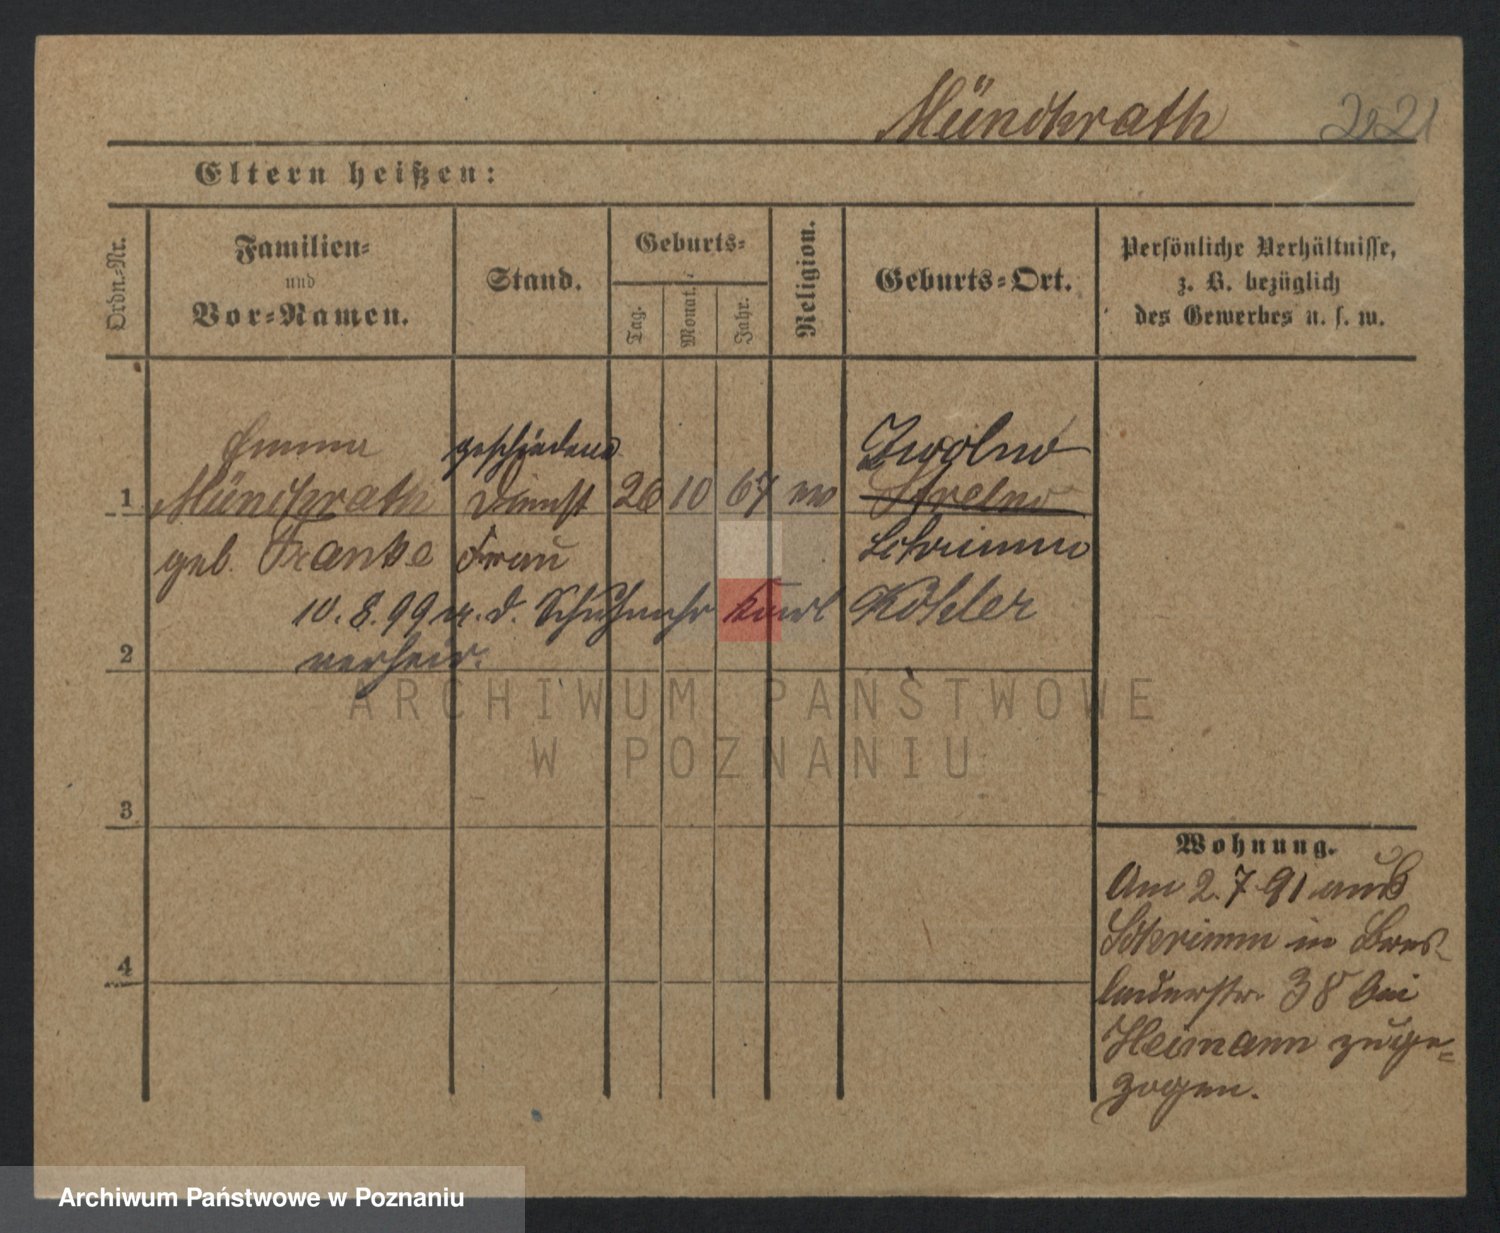 Münchrath 2021
Eltern heißen:
Ordn.-Nr.
Familien-
und
Vor-Namen.
Stand.
Geburts-
Tag.
Monat.
Jahr.
Religion.
Geburts-Ort.
Persönliche Verhältnisse,
z. B. bezüglich
des Gewerbes u. s. w.
Emma geschiedene
1 Münchrath Dienst 26 10 67 ev Strelno
geb. Franke Frau Schrimm
10. 8. 99 m. d. Karl Köhler
verheir.
2
3
4
Wohnung.
Am 2.7.91 aus
Schrimm in Bres-
lauerstr. 38 bei
Heimann zuge-
zogen.
ARCHIWUM PAŃSTWOWE
W POZNANIU
Archiwum Państwowe w Poznaniu